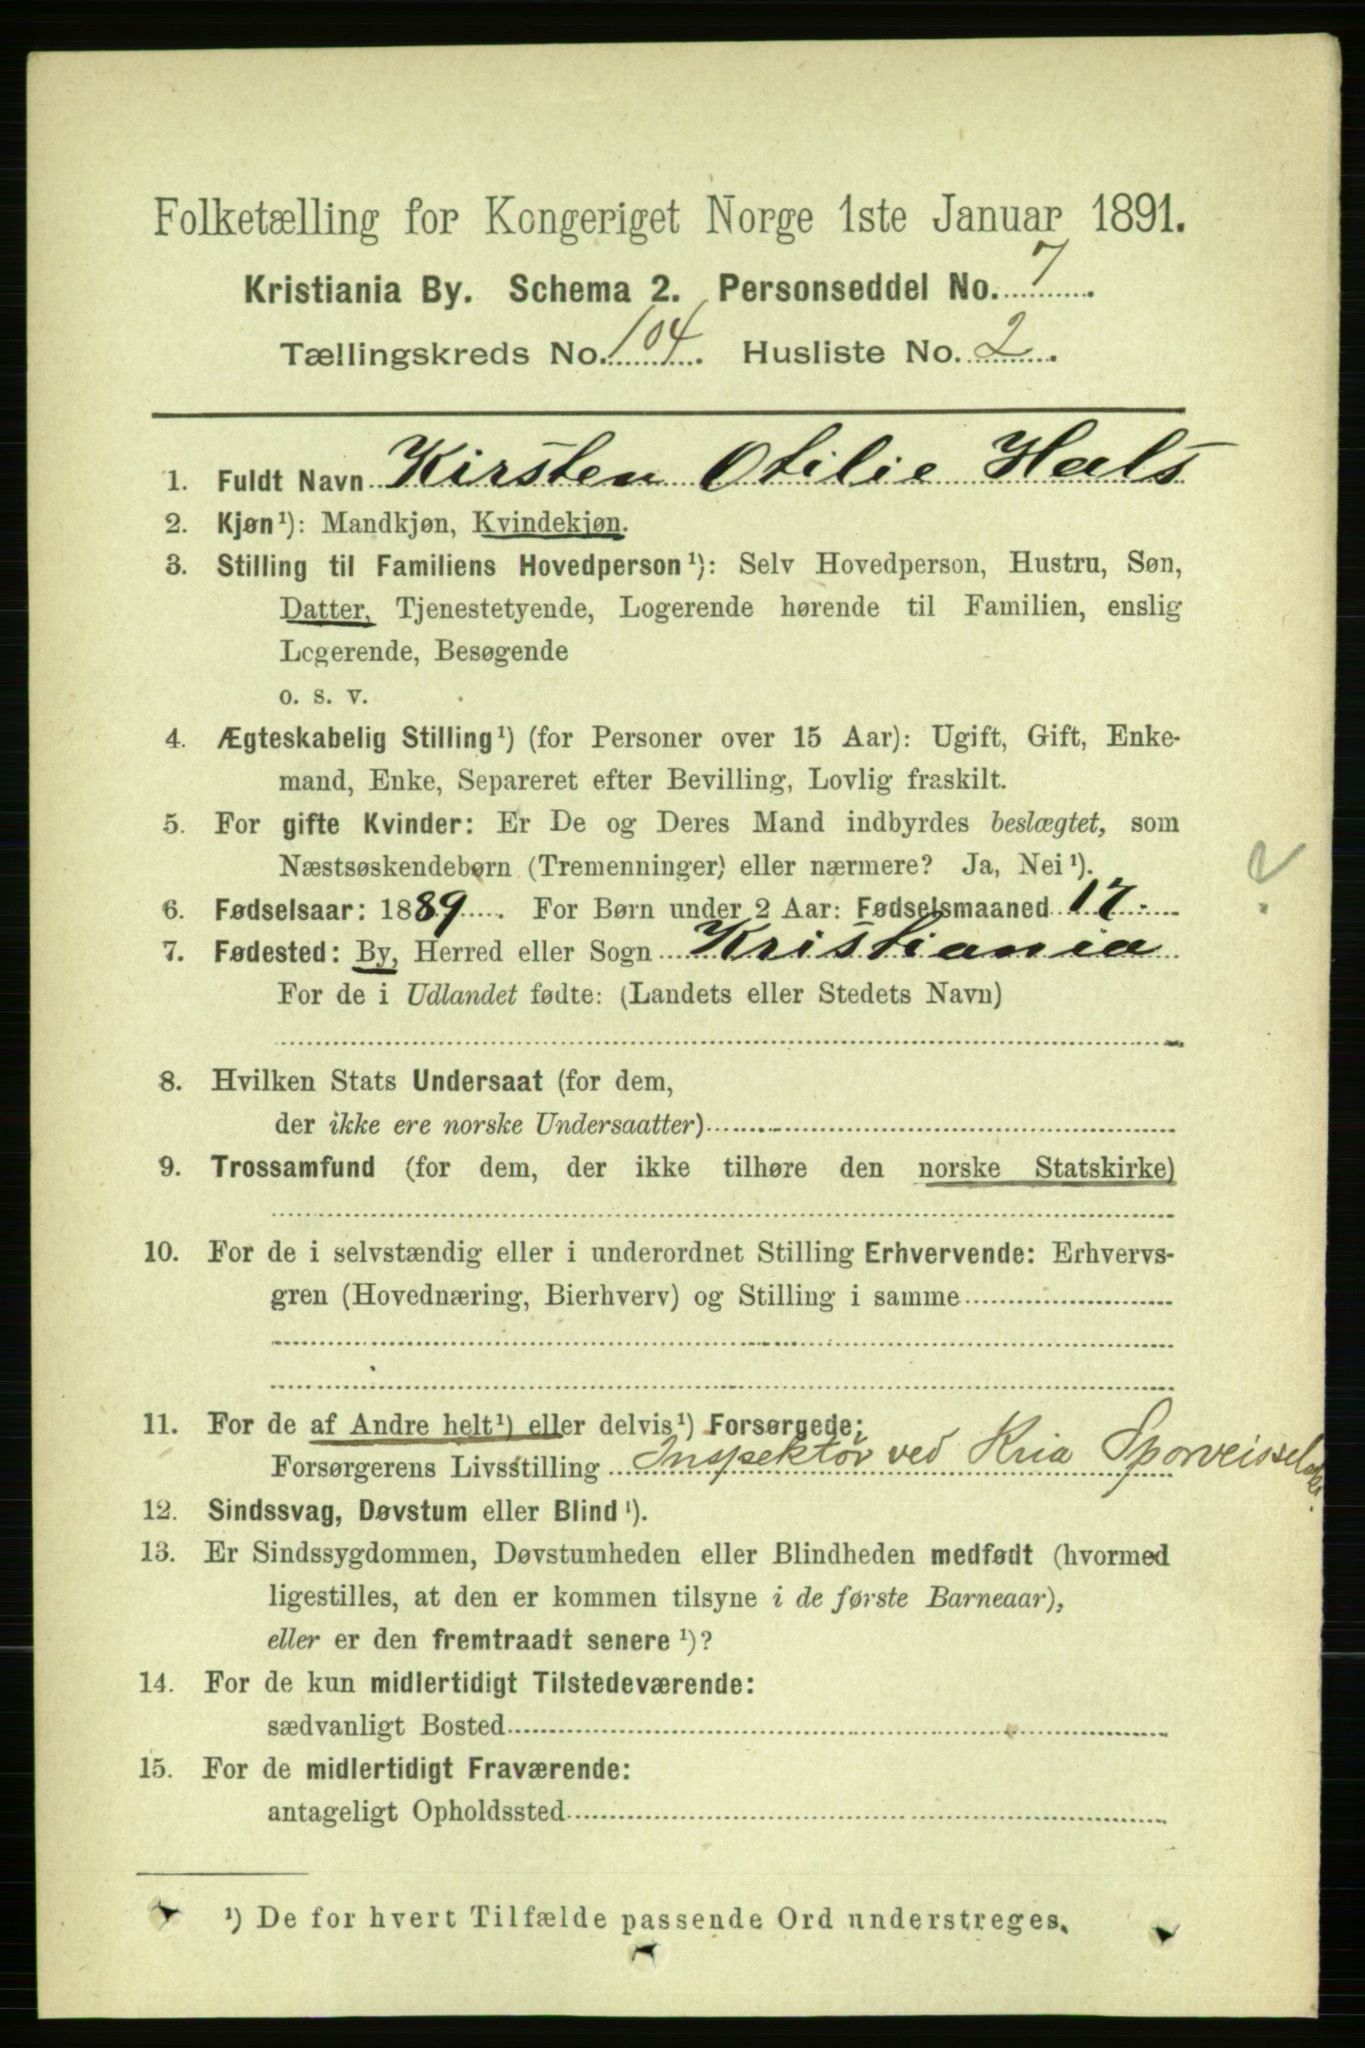 Folketælling for Kongeriget Norge 1ste Januar 1891.
Kristiania By. Schema 2. Personseddel No. 7
Tællingskreds No. 104. Husliste No. 2.
1. Fuldt Navn Kirsten Otilie Hals
2. Kjøn¹): Mandkjøn, Kvindekjøn.
3. Stilling til Familiens Hovedperson¹): Selv Hovedperson, Hustru, Søn,
Datter, Tjenestetyende, Logerende hørende til Familien, enslig
Logerende, Besøgende
o. s. v.
4. Ægteskabelig Stilling¹) (for Personer over 15 Aar): Ugift, Gift, Enke-
mand, Enke, Separeret efter Bevilling, Lovlig fraskilt.
5. For gifte Kvinder: Er De og Deres Mand indbyrdes beslægtet, som
Næstsøskendebørn (Tremenninger) eller nærmere? Ja, Nei¹).
6. Fødselsaar: 1889. For Børn under 2 Aar: Fødselsmaaned 17.
?
7. Fødested: By, Herred eller Sogn Kristiania
For de i Udlandet fødte: (Landets eller Stedets Navn)
8. Hvilken Stats Undersaat (for dem,
der ikke ere norske Undersaatter)
9. Trossamfund (for dem, der ikke tilhøre den norske Statskirke)
10. For de i selvstændig eller i underordnet Stilling Erhvervende: Erhvervs-
gren (Hovednæring, Bierhverv) og Stilling i samme
11. For de af Andre helt¹) eller delvis¹) Forsørgede;
Forsørgerens Livsstilling Inspektør ved Kria Sporveisselsk.
12. Sindssvag, Døvstum eller Blind¹).
13. Er Sindssygdommen, Døvstumheden eller Blindheden medfødt (hvormed
ligestilles, at den er kommen tilsyne i de første Barneaar),
eller er den fremtraadt senere¹)?
14. For de kun midlertidigt Tilstedeværende:
sædvanligt Bosted
15. For de midlertidigt Fraværende:
antageligt Opholdssted
¹) De for hvert Tilfælde passende Ord understreges.